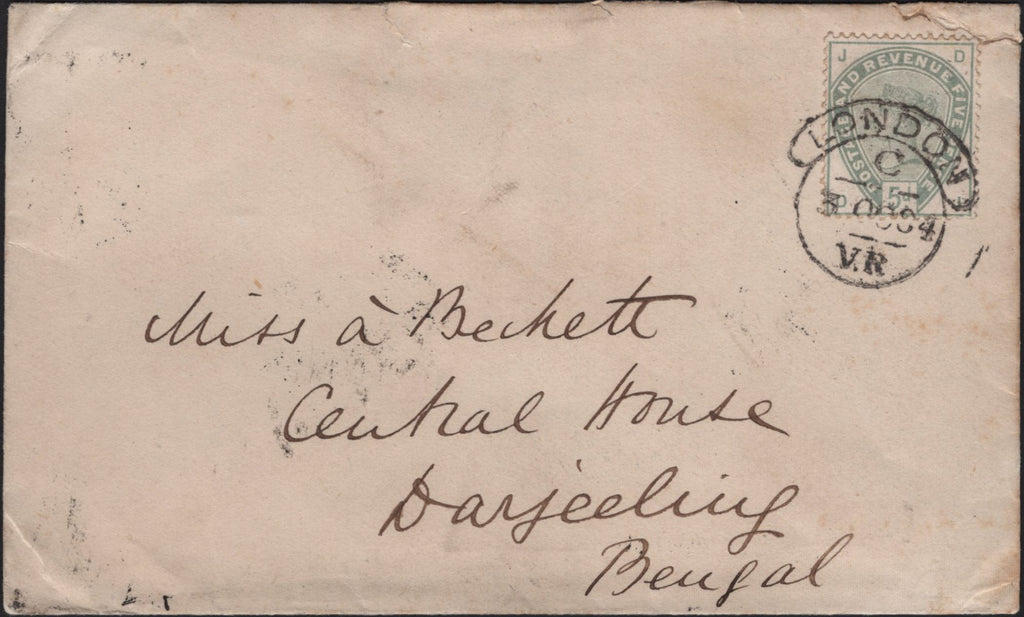 J D
POSTAGE AND REVENUE FIVE
5d
LONDON
C
3 OC 84
V.R
Miss à Beckett
Central House
Darjeeling
Bengal